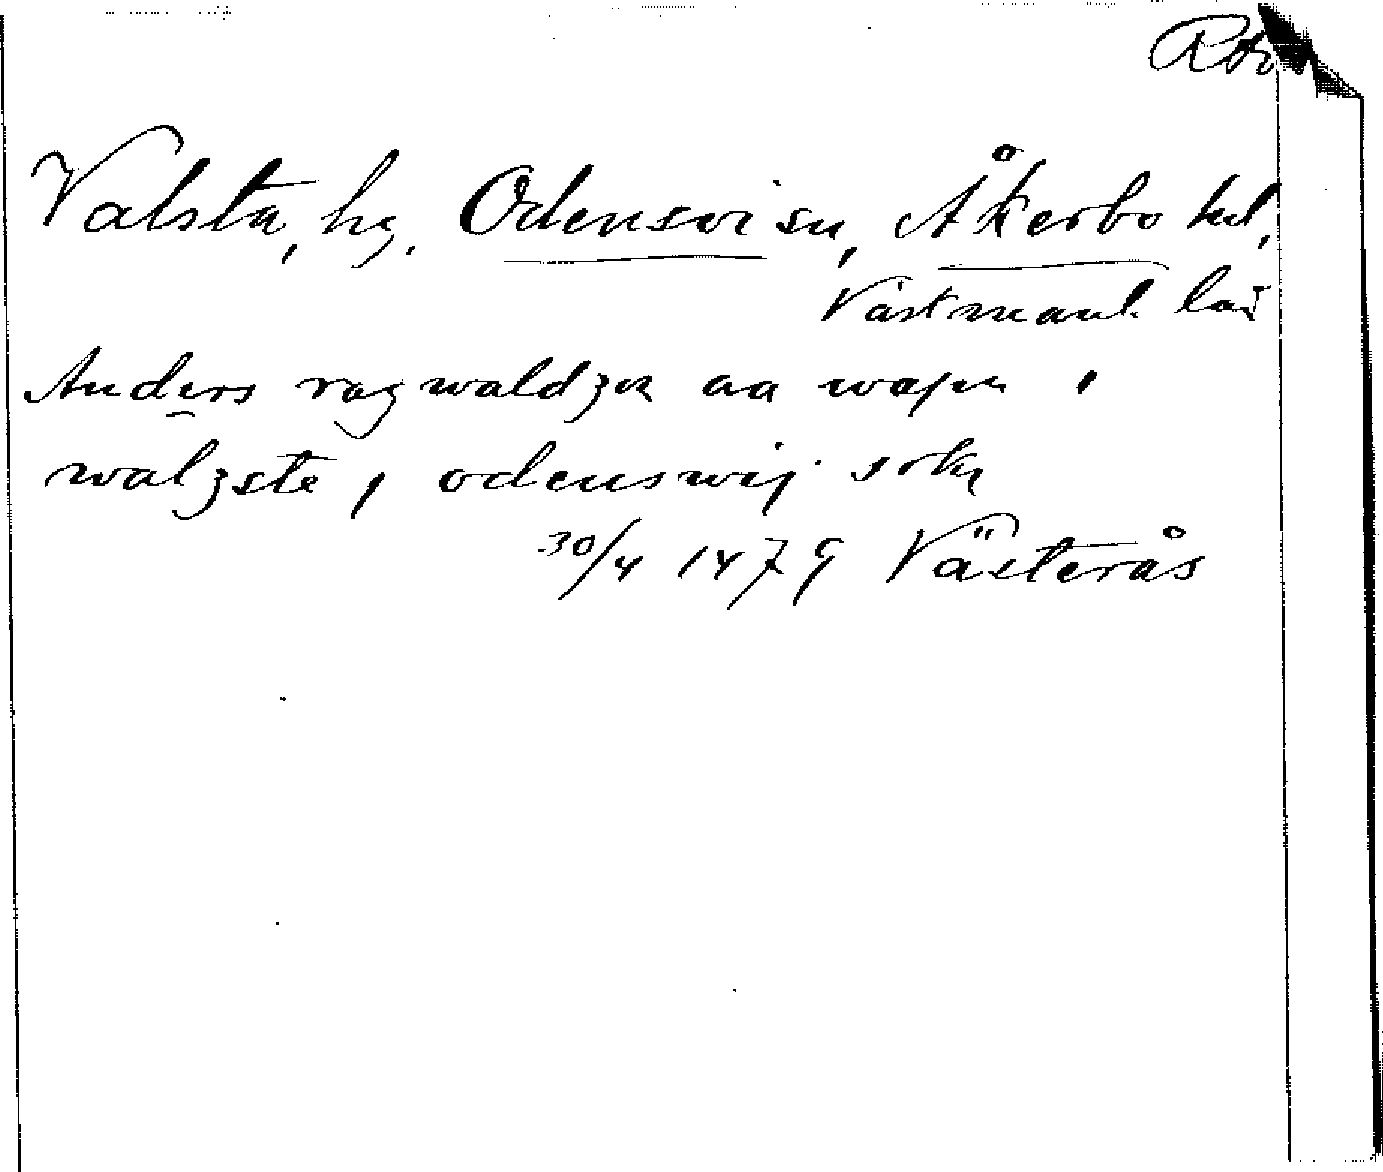 Valsta, hg. Odensvi sn, Åkerbo hd,
Västmanl. län
Anders ragwaldzon aa wapn i
walzsta i odenswij sokn
30/4 1479 Västerås